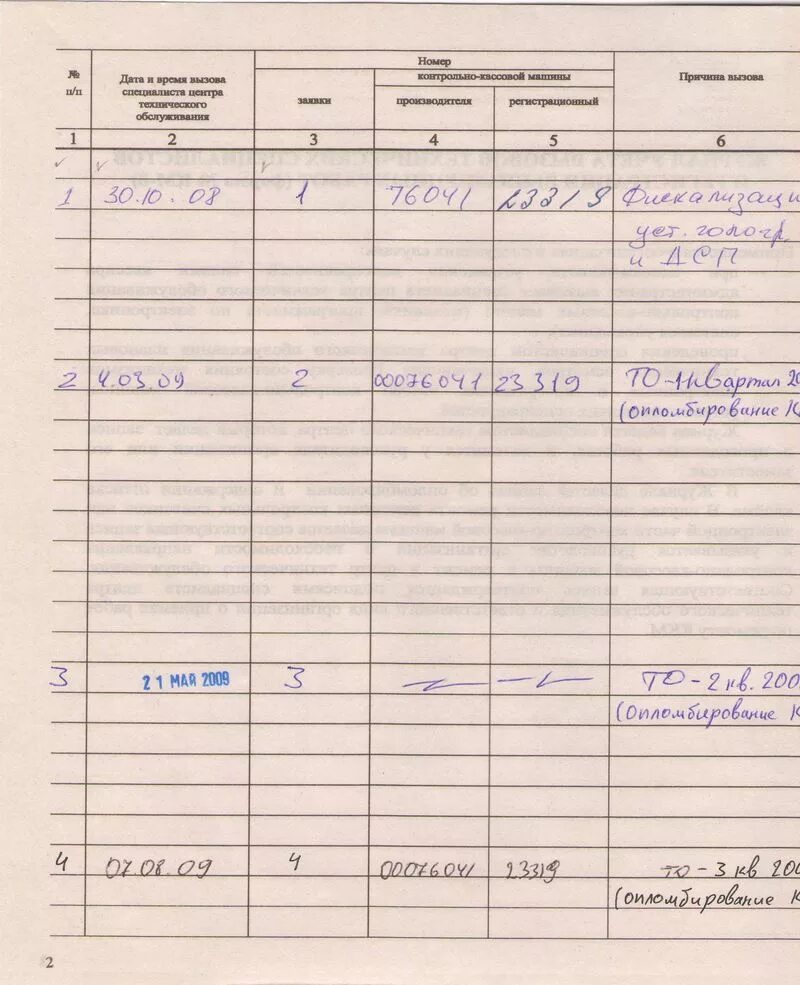 № п/п
Дата и время вызова специалиста центра технического обслуживания
Номер
заявки
контрольно-кассовой машины
производителя
регистрационный
Причина вызова
1 2 3 4 5 6
1 30.10.08 1 76041 23319 Фискализаци
уст. гологр.
и ДСП
2 4.03.09 2 00076041 23319 ТО-1квартал 20
(опломбирование К
3 21 МАЙ 2009 3 ТО-2 кв. 200
(опломбирование К
4 07.08.09 4 00076041 23319 ТО-3 кв 200
(опломбирование К
2